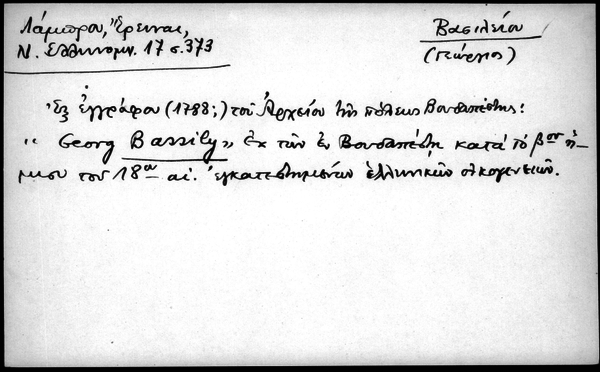 Λάμπρου, Ἔρευναι,
Ν. Ἑλληνομν. 17 σ. 373
Βασιλείου
(Γεώργιος)
Ἐξ ἐγγράφου (1788;) τοῦ Ἀρχείου τῆς πόλεως Βουδαπέστης:
“ Georg Bassily „ Ἐκ τῶν ἐν Βουδαπέστῃ κατὰ τὸ βον ἥ-
μισυ τοῦ 18ου αἰ. ἐγκατεστημένων ἑλληνικῶν οἰκογενειῶν.